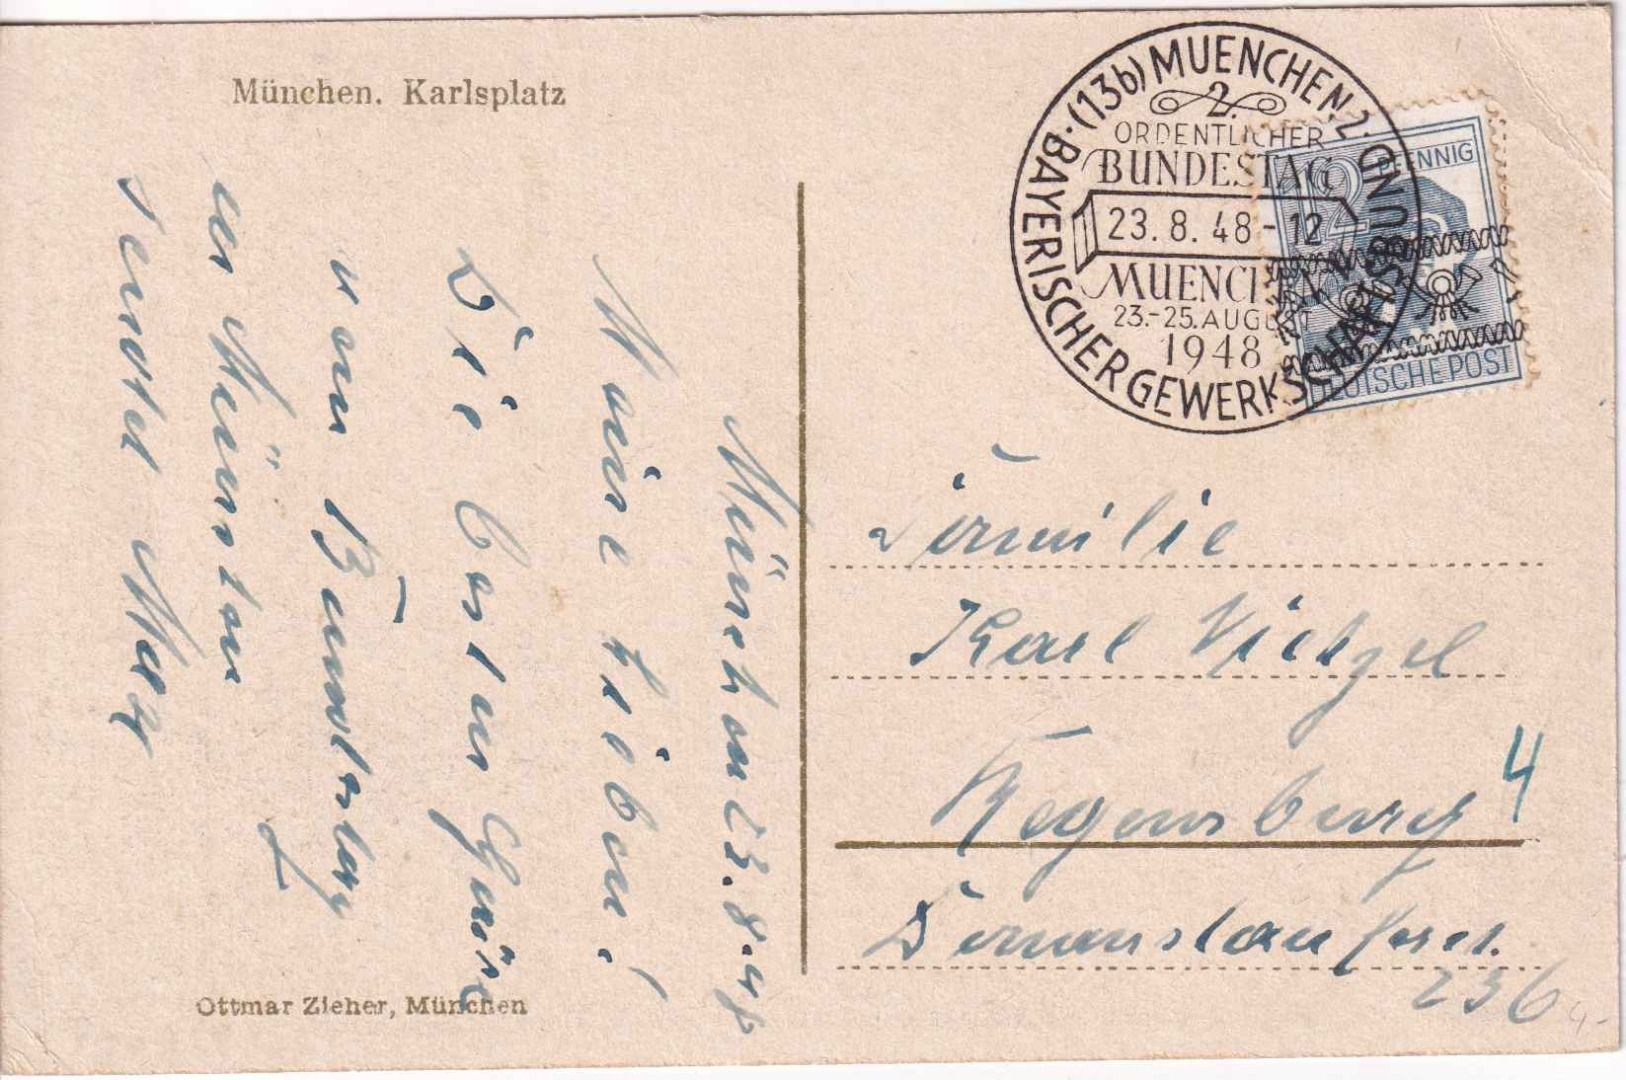 München. Karlsplatz
München 23.8.48
Meine Lieben!
Die besten Grüße
von
aus München
sendet Max
Ottmar Zieher, München
(13b) MUENCHEN 2 · BAYERISCHER GEWERKSCHAFTSBUND
2.
ORDENTLICHER
BUNDESTAG
23.8.48-12
MUENCHEN
23.-25. AUGUST
1948
12 PFENNIG
DEUTSCHE POST
Familie
Karl
Regensburg 4
Donaustauferstr.
236
4-